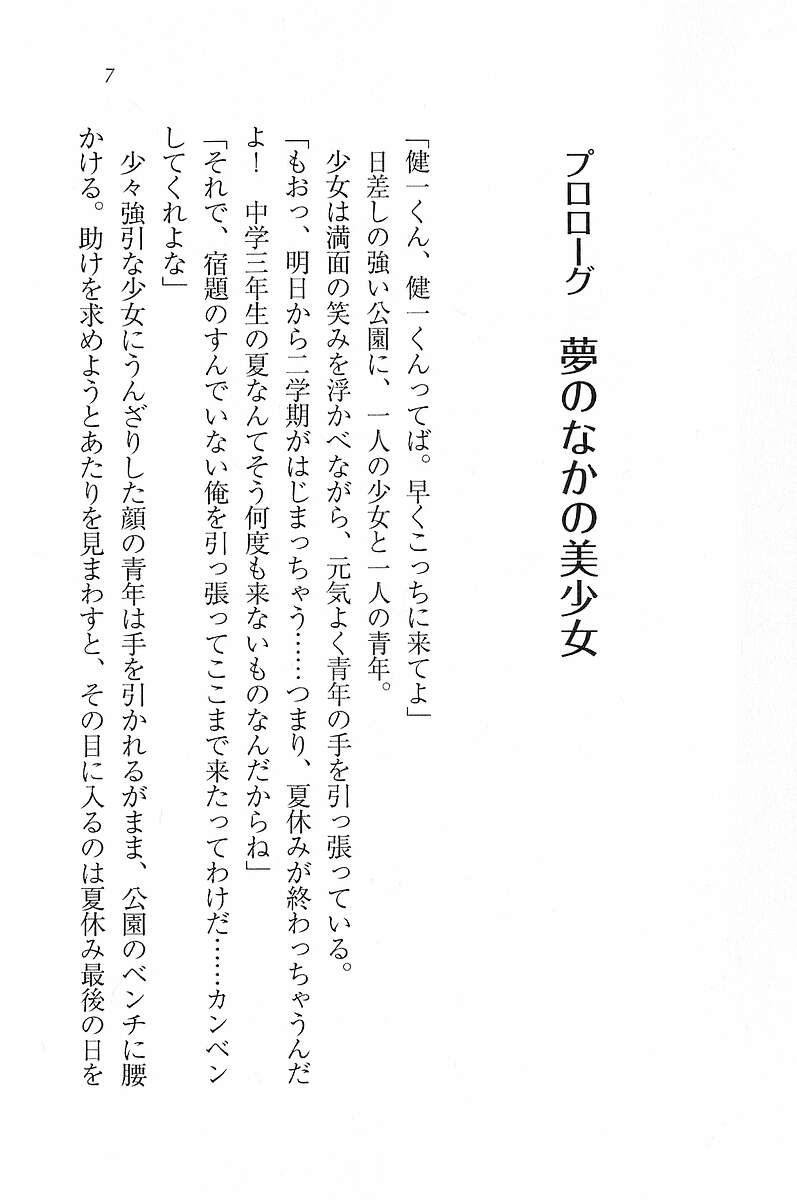 プロローグ　夢のなかの美少女
「健一くん、健一くんってば。早くこっちに来てよ」
日差しの強い公園に、一人の少女と一人の青年。
少女は満面の笑みを浮かべながら、元気よく青年の手を引っ張っている。
「もおっ、明日から二学期がはじまっちゃう……つまり、夏休みが終わっちゃうんだ
よ！　中学三年生の夏なんてそう何度も来ないものなんだからね」
「それで、宿題のすんでいない俺を引っ張ってここまで来たってわけだ……カンベン
してくれよな」
少々強引な少女にうんざりした顔の青年は手を引かれるがまま、公園のベンチに腰
かける。助けを求めようとあたりを見まわすと、その目に入るのは夏休み最後の日を
7